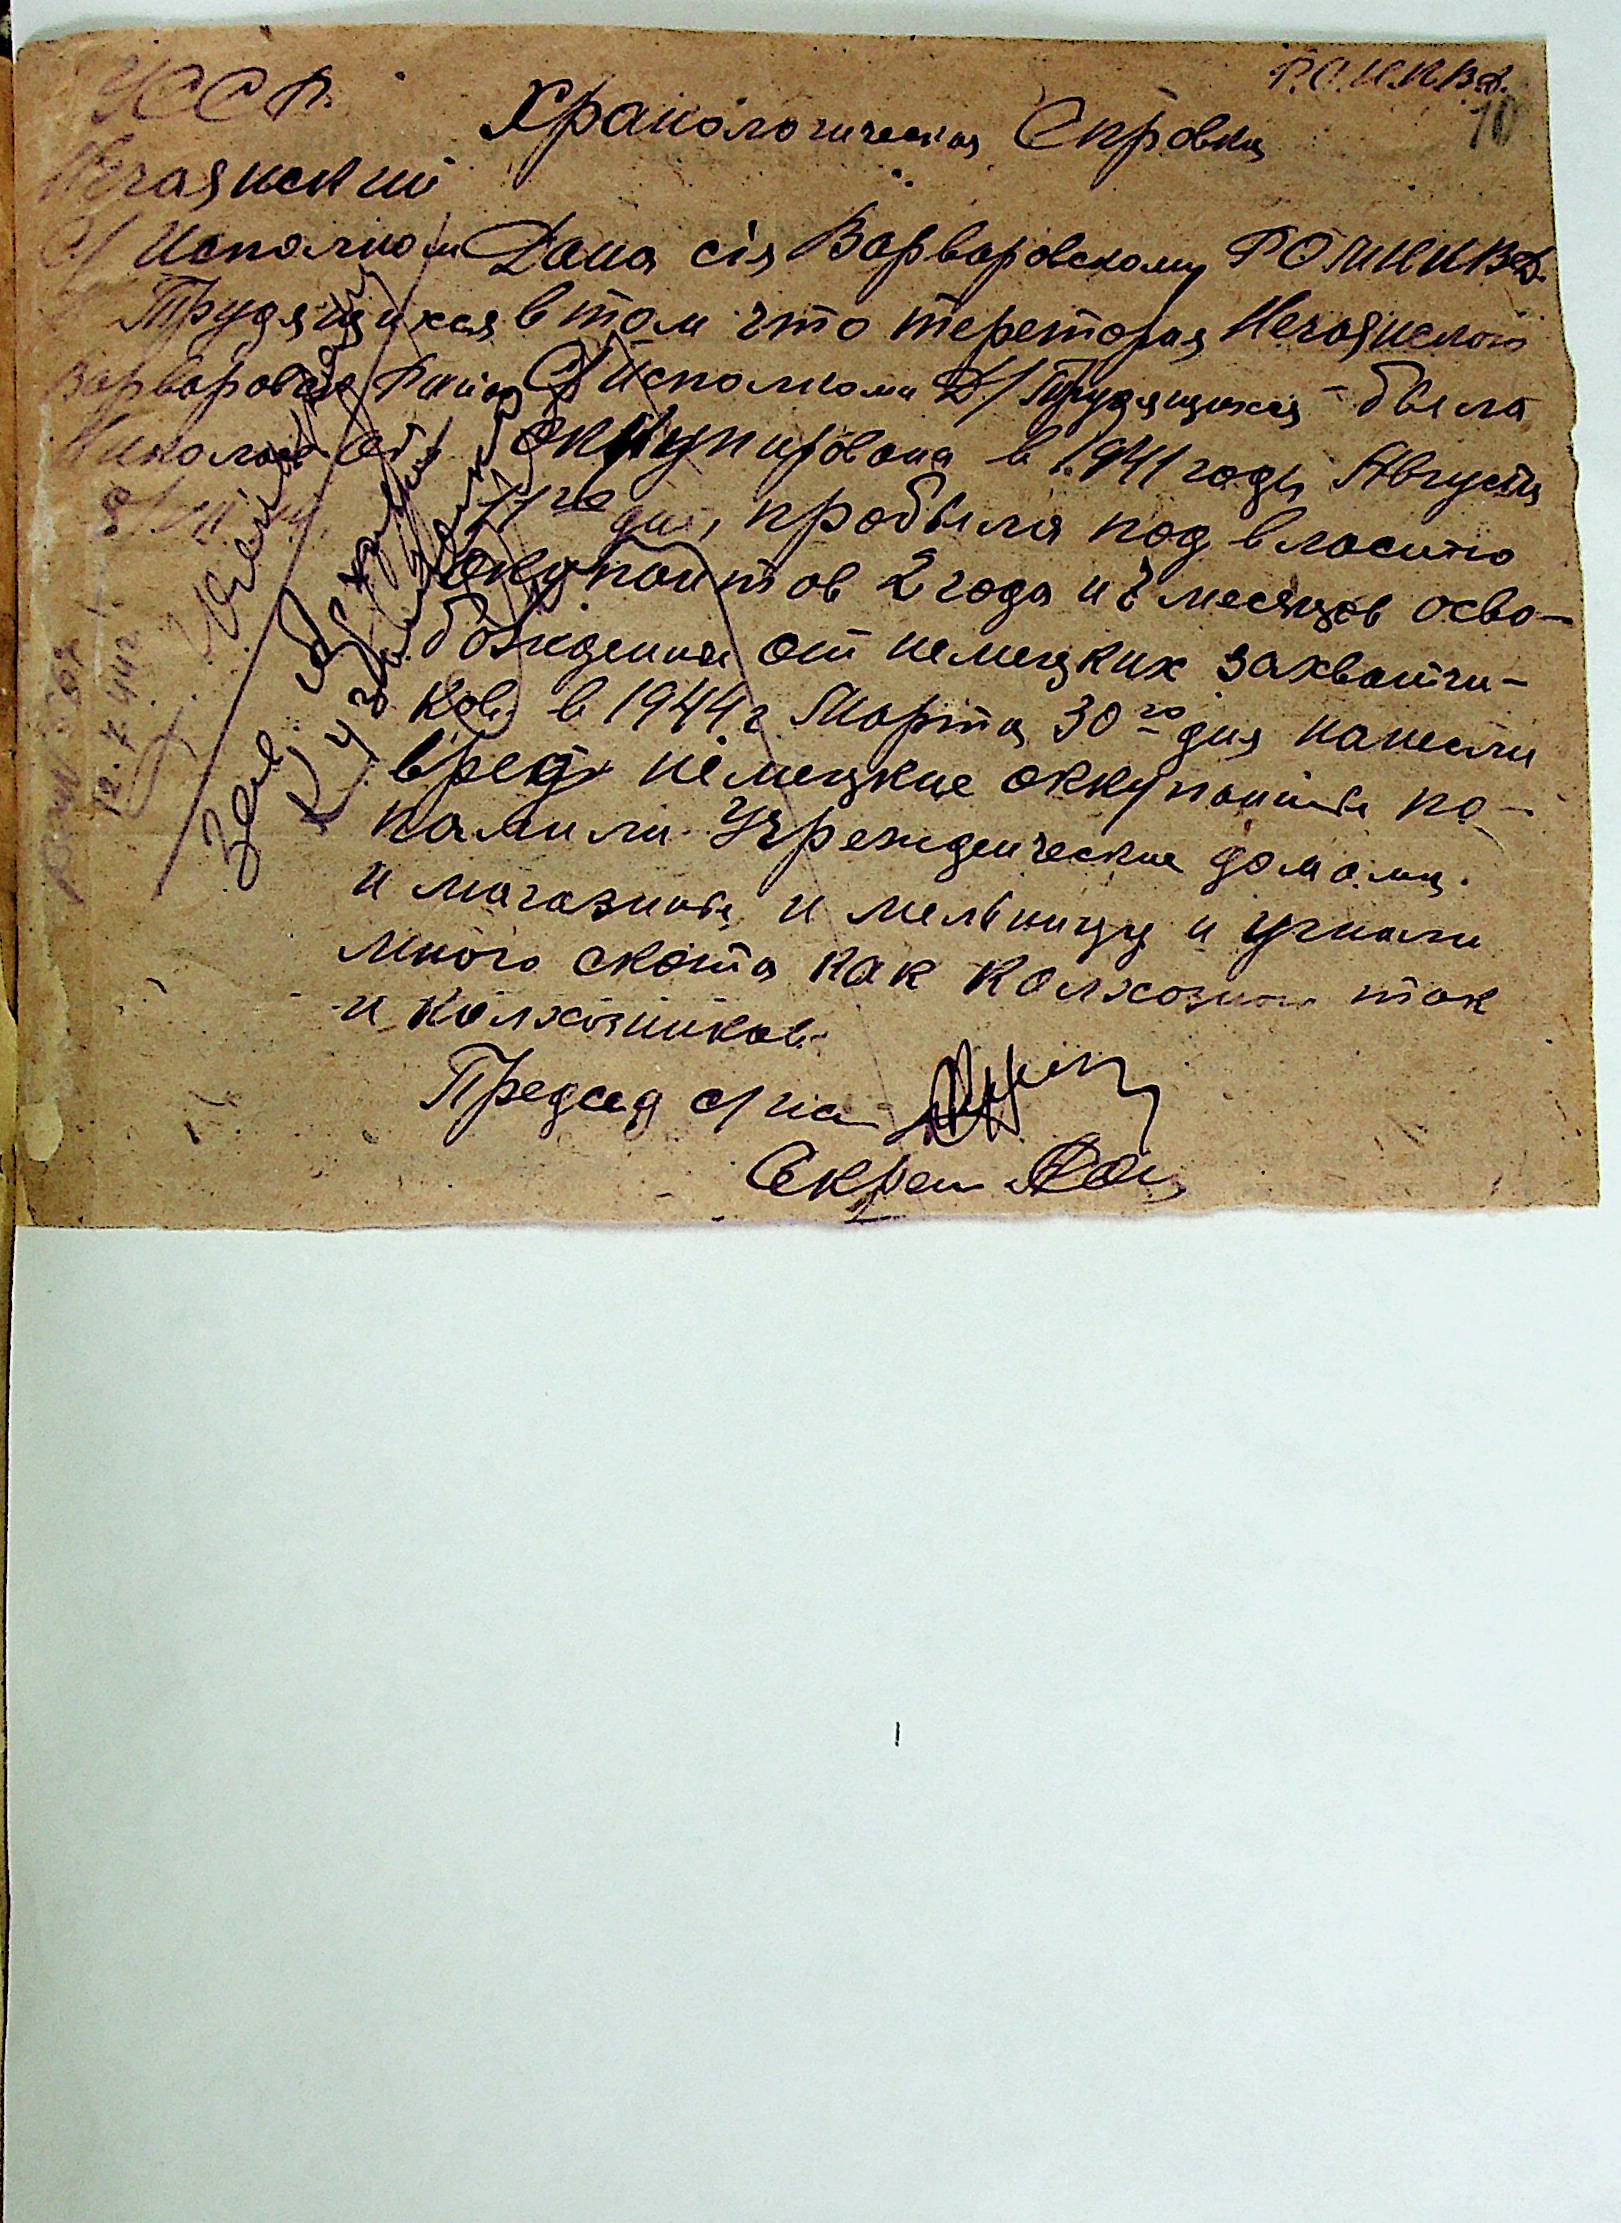 УССР
Нечаянский
С/Исполком
Трудящихся
Варваровского Район
Николаев обл
12.7.44 г.
Р.О.Н.К.В.Д.
10
Хранологическая Справка
Дана сія Варваровскому РО НКВД
в том что тереторая Нечаянского
С/Исполкома Д/Трудящихся - была
оккупирована в 1941 году Августа
11го дня, пробыла под властю
окупантов 2 года и 8 месяцов осво-
бождения от немецких захватчи-
ков в 1944 г. Марта 30го дня нанесли
вред немецкие оккупанты по-
памили Учрежденческие домами
и магазины и мельницу и угнали
много скота как колхозного так
и колхозников
Председ с/исп
Секрет
Зав. Архивом